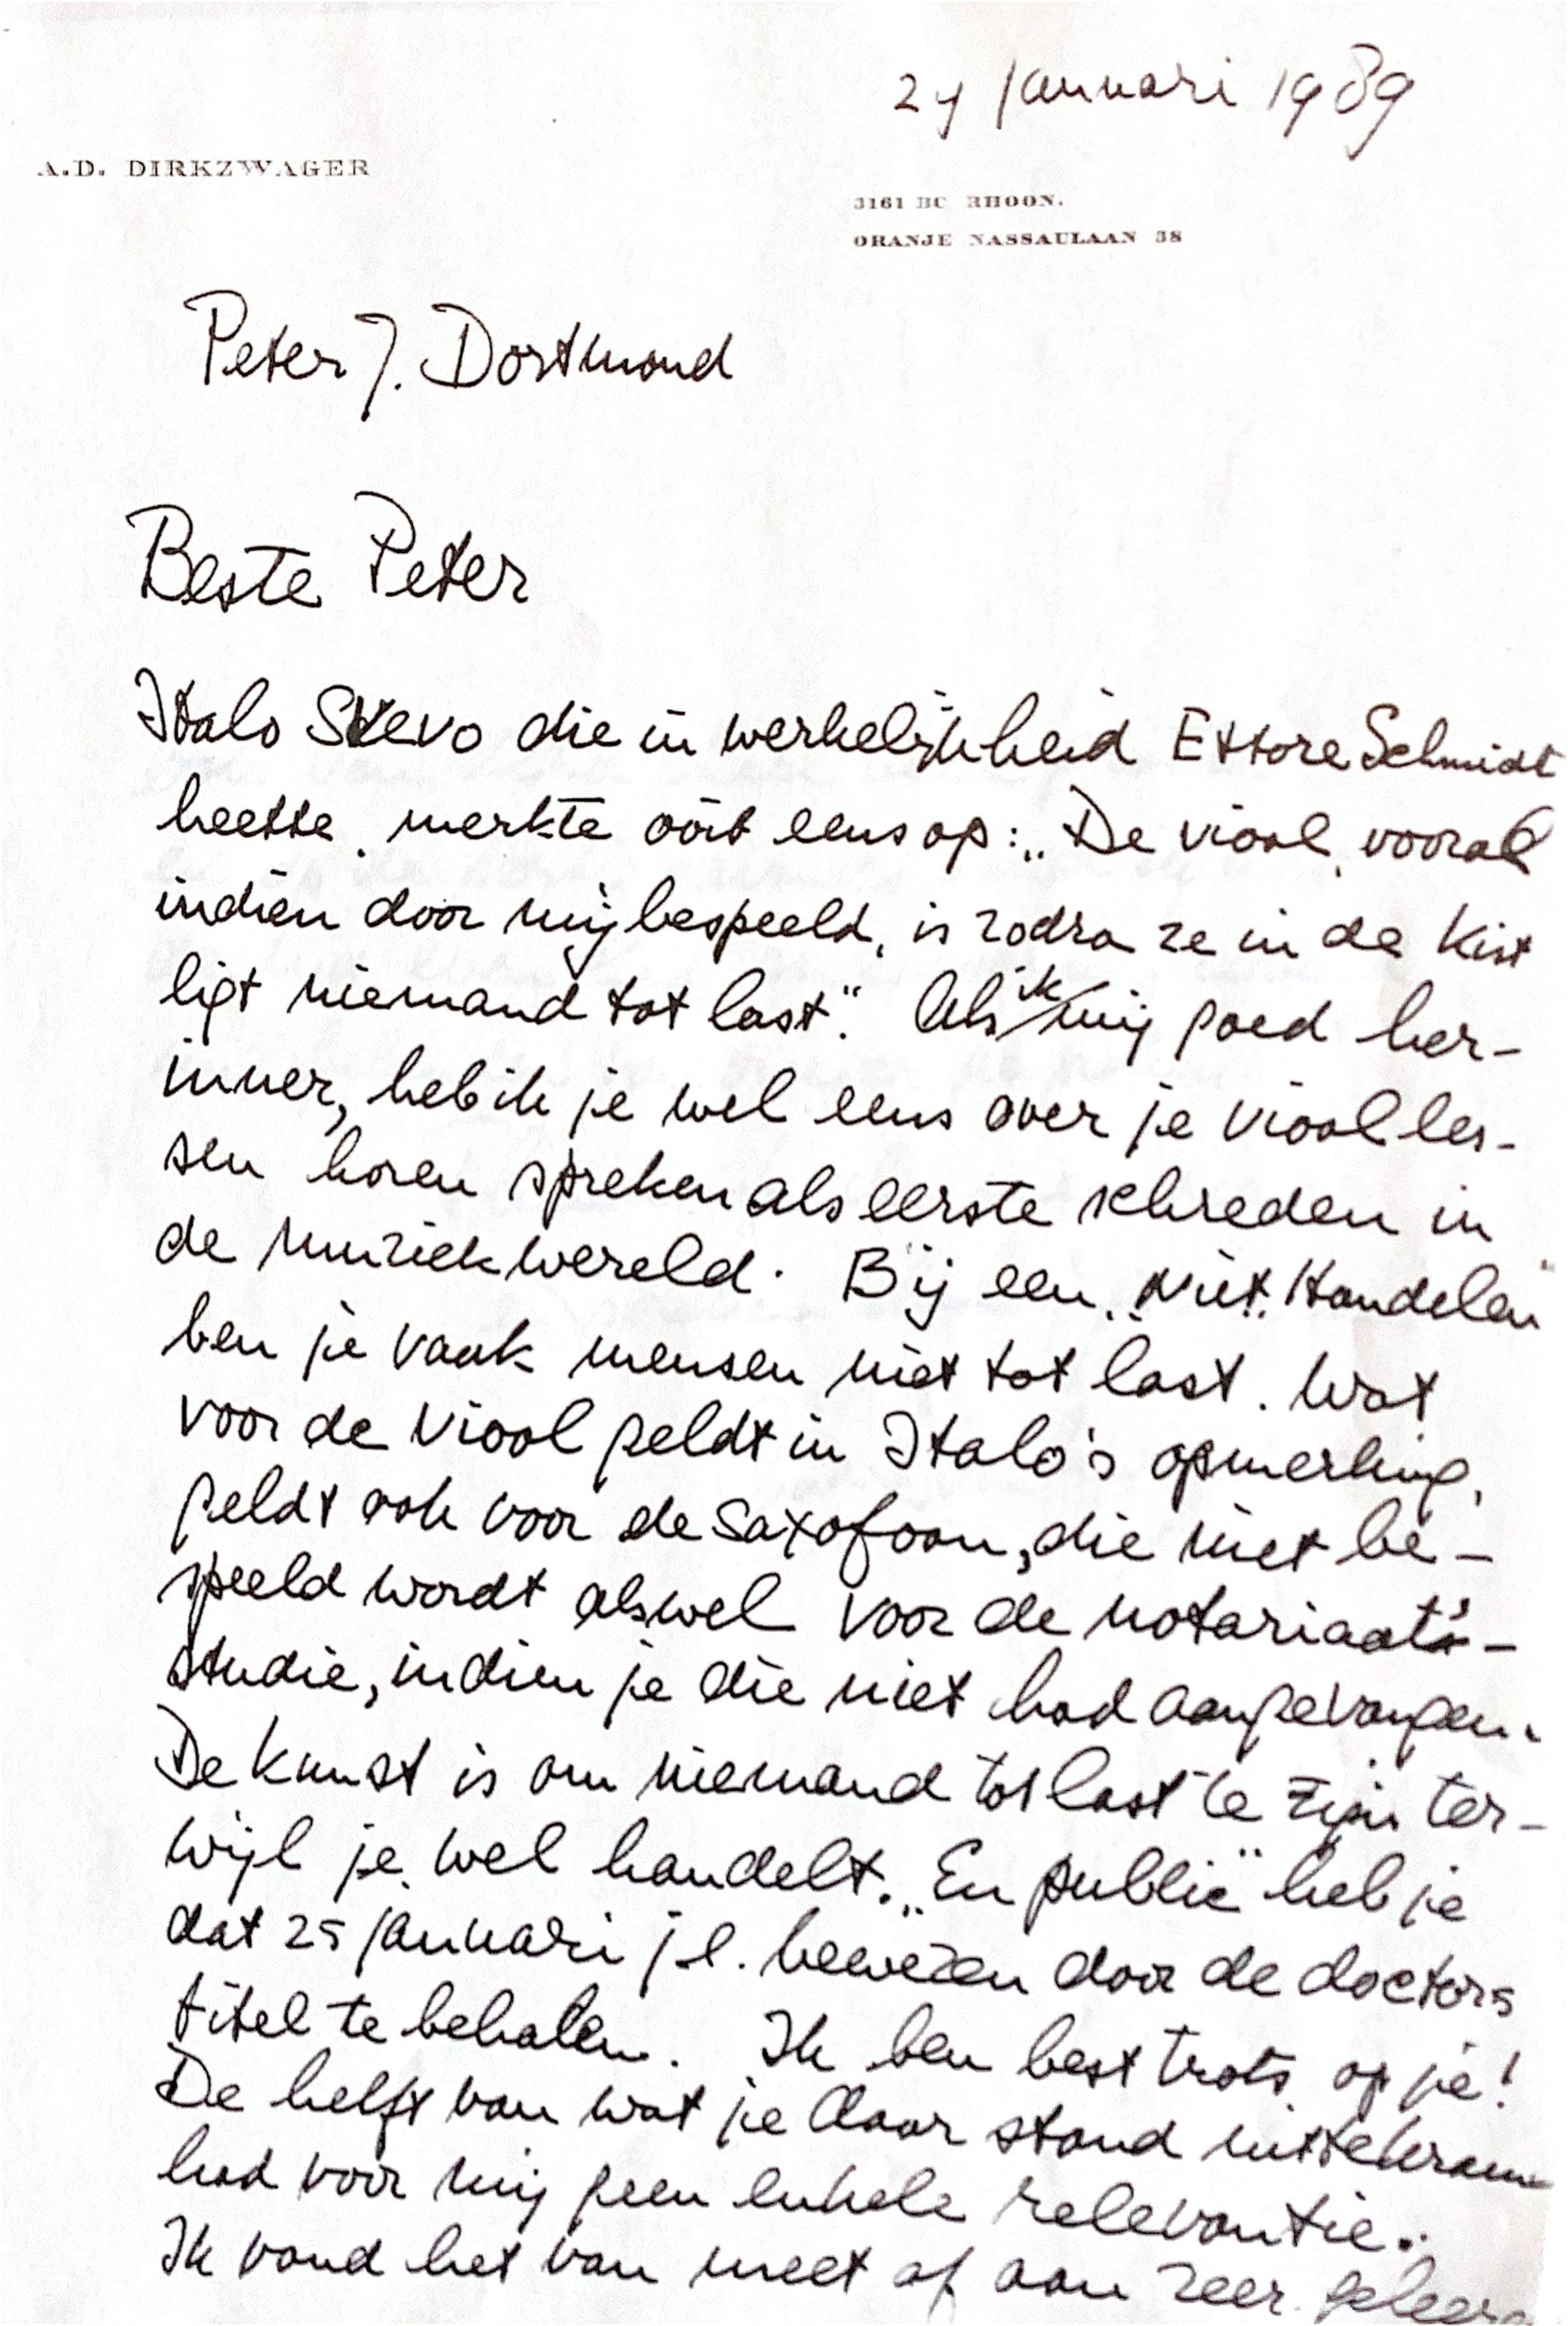 januari 1989
A.D. DIRKZWAGER
3161 BC RHOON.
ORANJE NASSAULAAN 38
Peter J. Dortmond
Beste Peter
Italo Svevo die in werkelijkheid Ettore Schmidt
heette, merkte ooit eens op: „De viool, vooral
indien door mij bespeeld, is zodra ze in de kist
ligt niemand tot last". Als ik mij goed her-
inner, heb ik je wel eens over je vioolles-
sen horen spreken als eerste schreden in
de muziekwereld. Bij een „Niet" Handelen
ben je vaak mensen niet tot last. Wat
voor de viool geldt in Italo's opmerking,
geldt ook voor de saxofoon, die niet be-
speeld wordt alswel voor de notariaats-
studie, indien je die niet had aangevangen.
De kunst is om niemand tot last te zijn ter-
wijl je wel handelt. „En public" heb je
dat 25 januari j.l. bewezen door de doctors
titel te behalen. Ik ben best trots op je!
De helft van wat je daar stond uittekramen
had voor mij geen enkele relevantie.
Ik vond het van meet af aan zeer geleerd